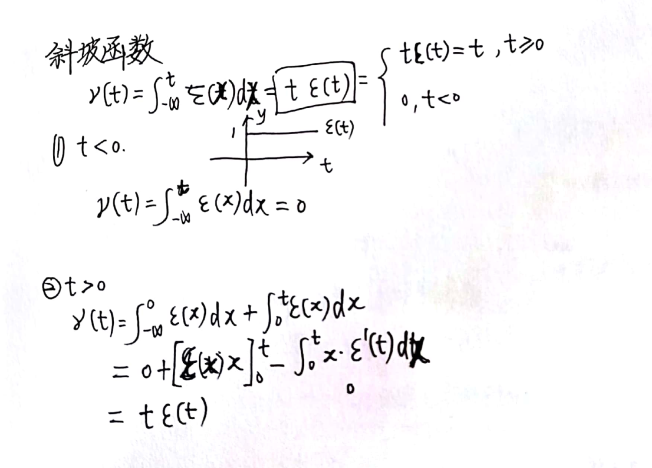 斜坡函数
γ(t)=∫_{-∞}^{t} ε(x)dx= t ε(t) = { tε(t)=t , t≥0
0, t<0
① t<0.
1 y ε(t)
t
γ(t)=∫_{-∞}^{t} ε(x)dx=0
② t>0
γ(t)=∫_{-∞}^{0} ε(x)dx+∫_{0}^{t} ε(x)dx
= 0+[ε(x)x]_{0}^{t} - ∫_{0}^{t} x·ε'(t)dx
0
= t ε(t)